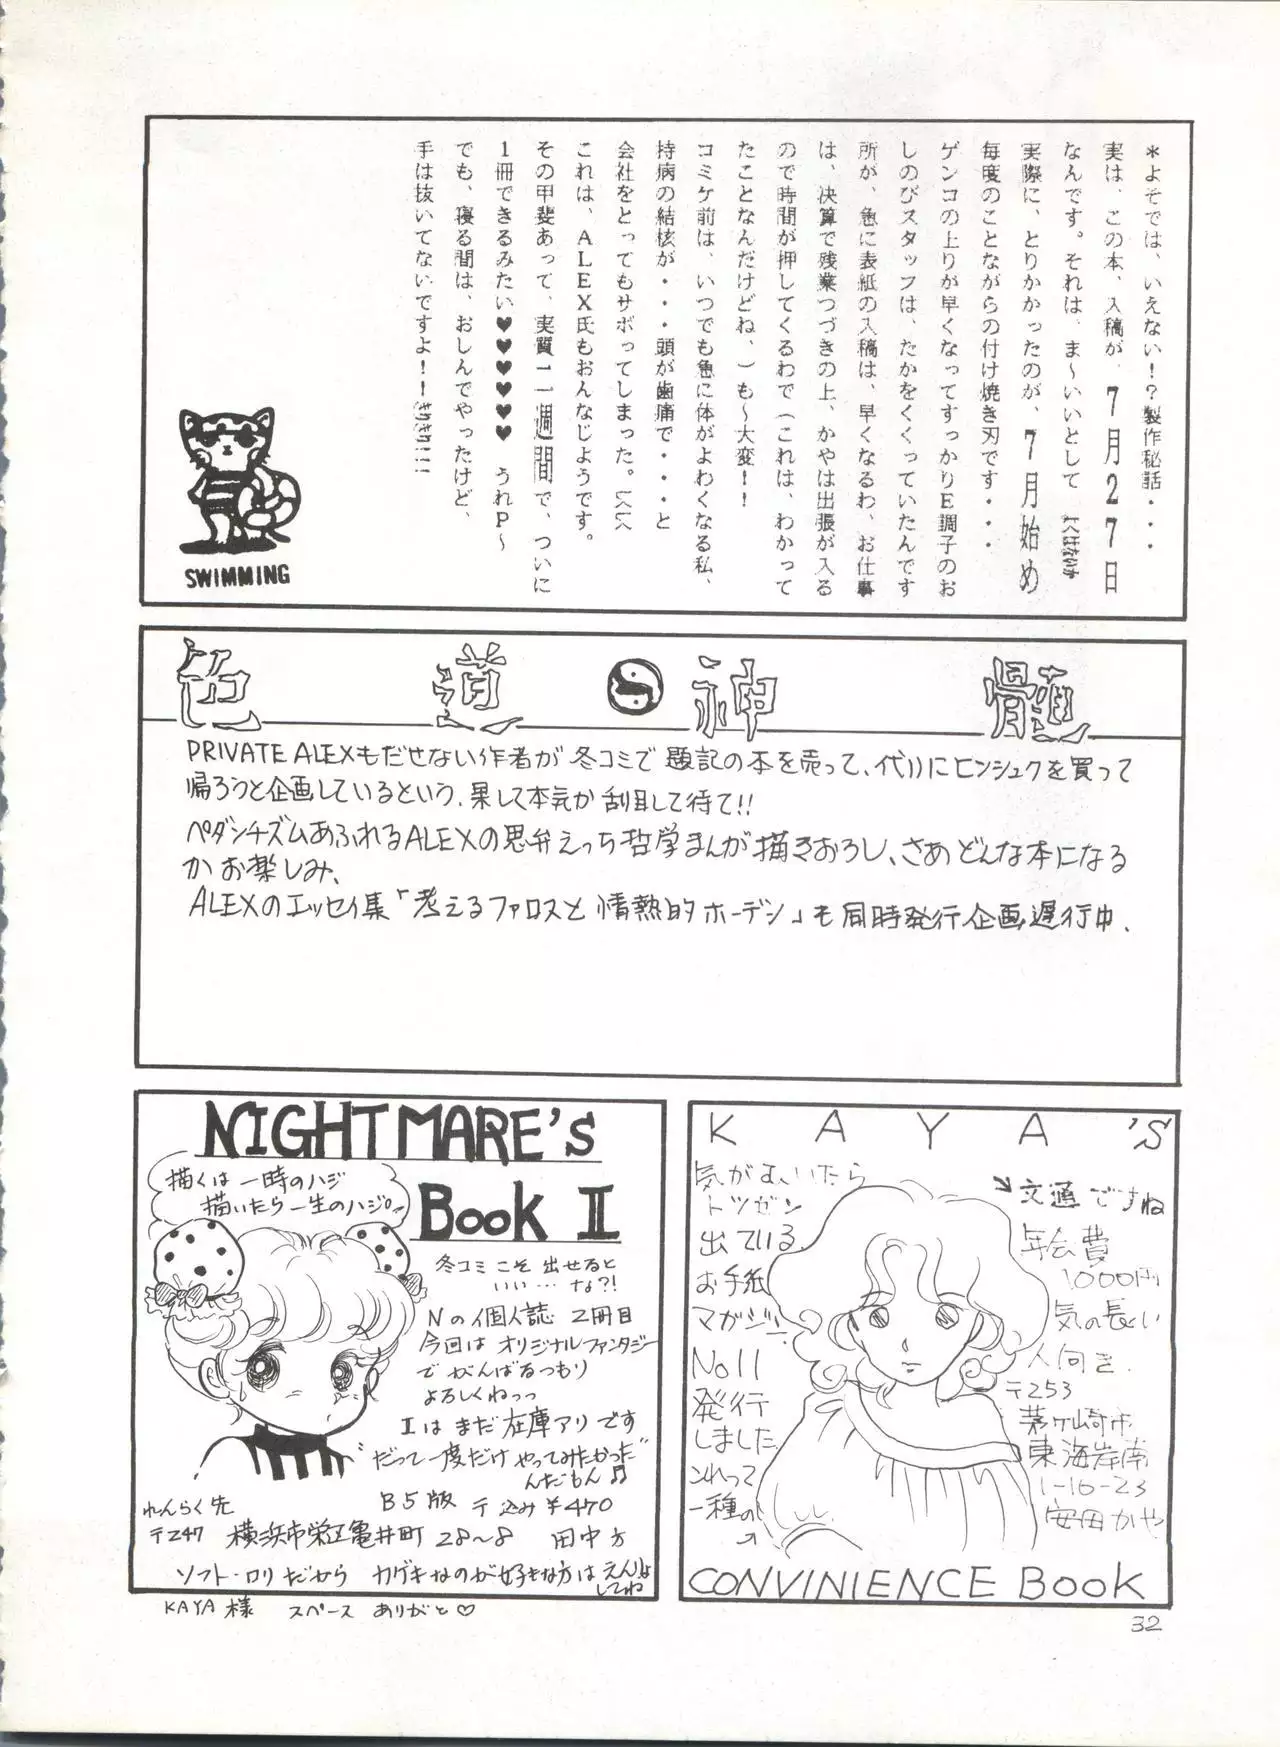 ＊よそでは、いえない！？製作秘話・・・
実は、この本、入稿が、7月27日
なんです。それは、ま〜いいとして
実際に、とりかかったのが、7月始め
毎度のことながらの付け焼き刃です・・・
ゲンコの上りが早くなってすっかりE調子のお
しのびスタッフは、たかをくくっていたんです
所が、急に表紙の入稿は、早くなるわ、お仕事
は、決算で残業つづきの上、かやは出張が入る
ので時間が押してくるわで（これは、わかって
たことなんだけどね、）も〜大変！！
コミケ前は、いつでも急に体がよわくなる私、
持病の結核が・・・頭が歯痛で・・・と
会社をとってもサボってしまった。
これは、ALEX氏もおんなじようです。
その甲斐あって、実質二週間で、ついに
1冊できるみたい♥♥♥♥♥♥ うれP〜
でも、寝る間は、おしんでやったけど、
手は抜いてないですよ！！
SWIMMING
色道神髄
PRIVATE ALEXもだせない作者が冬コミで題記の本を売って、代りにヒンシュクを買って
帰ろうと企画しているという、果して本気か刮目して待て!!
ペダンチズムあふれるALEXの思弁えっち哲学まんが描きおろし、さあどんな本になる
かお楽しみ、
ALEXのエッセイ集「考えるファロスと情熱的ホーデン」も同時発行企画遅行中．
NIGHTMARE's
Book II
描くは一時のハジ
描いたら一生のハジ。
冬コミこそ出せると
いい…な?!
Nの個人誌 2冊目
今回はオリジナルファンタジー
でがんばるつもり
よろしくねっっ
Iはまだ在庫アリです
"だって一度だけやってみたかった"
んだもん♫
B5版 〒込み ¥470
れんらく先
〒247 横浜市栄区亀井町 28〜8 田中方
ソフト・ロリだから カゲキなのが好きな方はえんりょ
してね
KAYA様 スペース ありがと♡
KAYA'S
気がむいたら
トツゼン
出ている
お手紙
マガジン
No11
発行
しました
これって
一種の
文通ですね
年会費
1000円
気の長い
人向き．
〒253
茅ヶ崎市
東海岸南
1-10-23
安田かや
CONVINIENCE BOOK
32